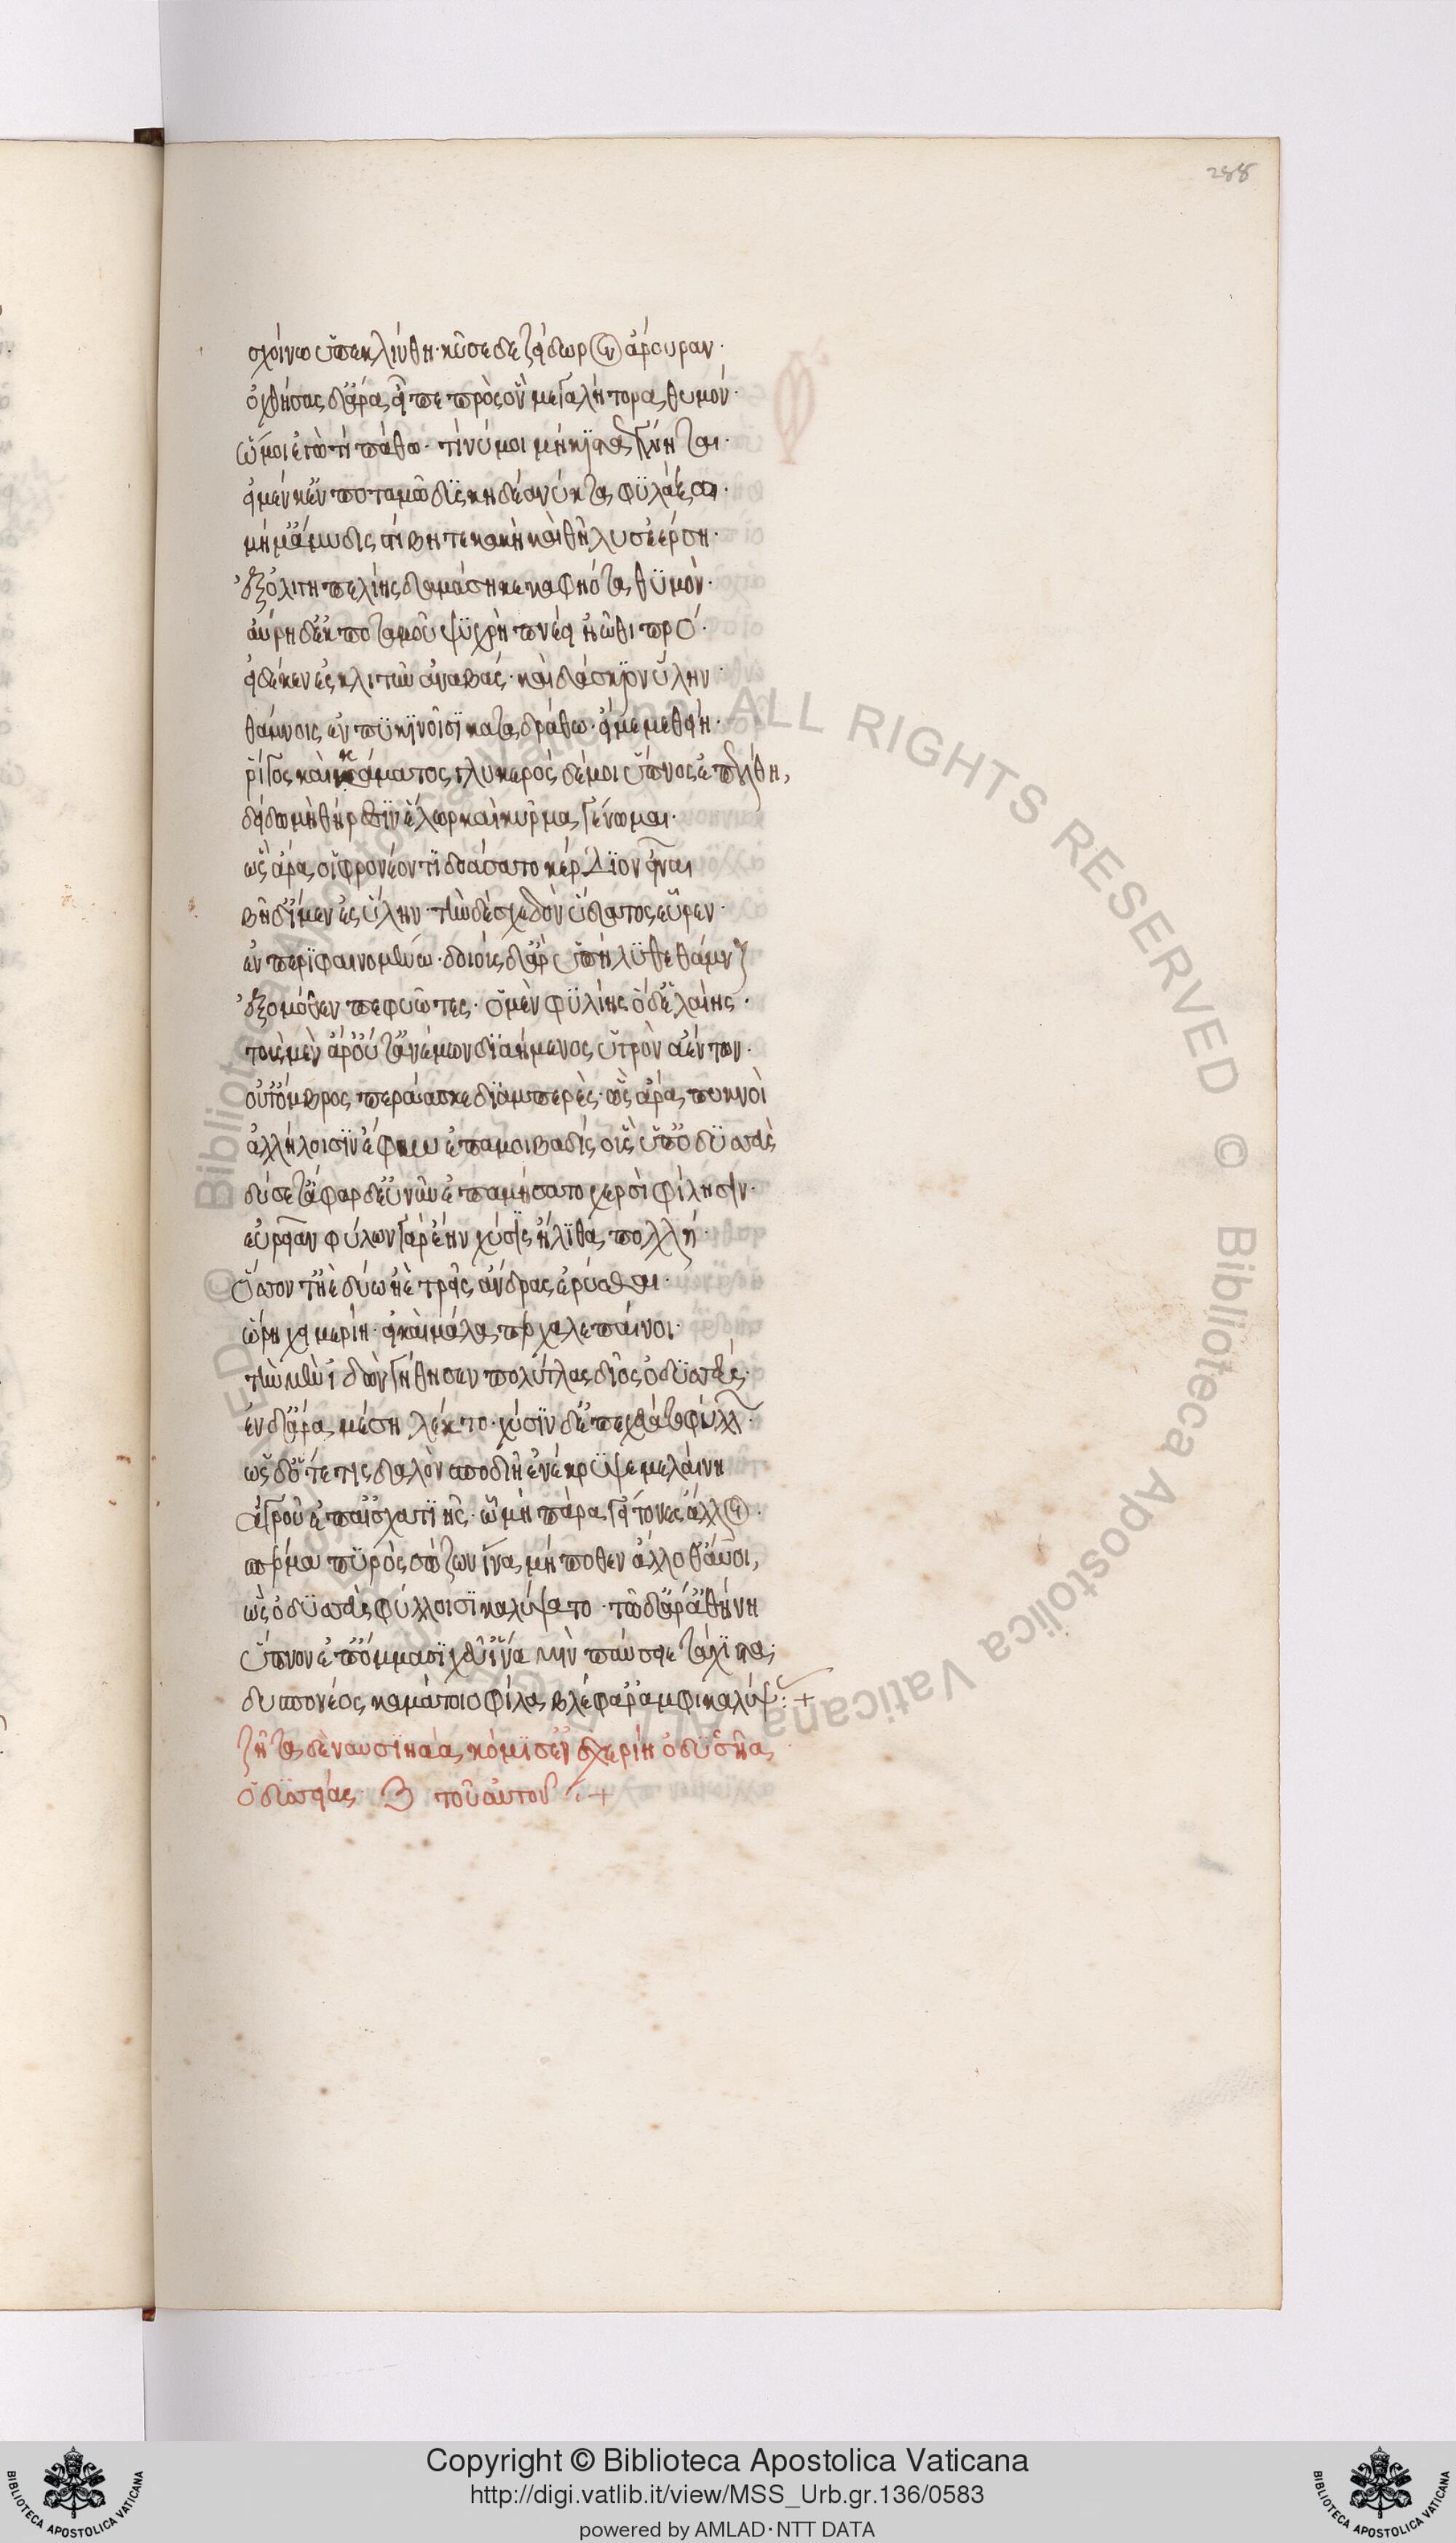 288
σχοίνω ὑπεκλίνθη· κῦσε δε ζείδωρον ἄρουραν·
ὀχθήσας δ᾽ ἄρα εἶπε πρὸς ὃν μεγαλήτορα θυμόν·
ὤ μοι ἐγὼ τί πάθω· τί νύ μοι μήκιστα γένηται·
εἰ μέν κεν ποταμῶ δϋςκηδέα νύκτα φϋλάξω·
μή μ᾽ ἄμυδις στίβη τε κακὴ καὶ θῆλυς ἐέρση·
ἐξ ὀλιγηπελίης δαμάση κεκαφηότα θϋμόν·
αὔρη δ᾽ ἐκ ποταμοῦ ψϋχρὴ πνέει ἠῶθι πρό·
εἰ δέ κεν ἐς κλιτὺν ἀναβὰς· καὶ δάσκιον ὕλην·
θάμνοις ἐν πϋκινοῖσϊ καταδράθω· εἴ με μεθείη·
ῥίγος καὶ κάματος, γλυκερὸς δέ μοι ὕπνος ἐπέλθη,
δείδω μὴ θήρεσσϊν ἕλωρ καὶ κύρμα γένωμαι·
ὣς ἄρα οἱ φρονέοντϊ δοάσατο κέρδϊον εἶναι
βῆ δ᾽ ἴμεν ἐς ὕλην· τὴν δὲ σχεδὸν ὕδατος εὗρεν·
ἐν περϊφαινομένω· δοιοὺς δ᾽ ἄρ ὑπήλϋθε θάμνους
ἐξ ὁμόθεν πεφυῶτες· ὁ μὲν φϋλίης ὁ δ᾽ ἐλαίης·
τοὺς μὲν ἄρ οὔτ᾽ ἀνέμων δϊαήμενος ὑγρὸν ἀέντων·
οὔτ᾽ ὄμβρος περάασκε δϊαμπερές· ὣς ἄρα πυκνοὶ
ἀλλήλοισϊν ἔφυν ἐπαμοιβαδὶς οὓς ὑπ᾽ ὀδϋσσεὺς
δύσετ᾽ ἄφαρ δ᾽ εὐνὴν ἐπαμήσατο χερσὶ φίλησιν·
εὐρεῖαν φύλων γὰρ ἔην χύσις ἤλϊθα πολλή·
ὅσσον τ᾽ ἠὲ δύω ἠὲ τρεῖς ἄνδρας ἔρυσθαι·
ὥρη χειμερίη· εἰ καὶ μάλα περ χαλεπαίνοι·
τὴν μὲν ἰδὼν γήθησεν πολύτλας δῖος ὀδϋσσεύς·
ἐν δ᾽ ἄρα μέση λέκτο· χύσϊν δ᾽ ἐπεχεύατο φύλλων·
ὡς δ᾽ ὅτε τις δαλὸν σποδιῆ ἐνέκρϋψε μελαίνη
ἀγροῦ ἐπ᾽ ἐσχατϊῆς· ὧ μὴ πάρα γείτονες ἄλλοι·
σπέρμα πϋρὸς σώζων ἵνα μή ποθεν ἄλλοθεν αὔοι,
ὣς ὀδϋσσεὺς φύλλοισϊ καλύψατο· τῶ δ᾽ ἄρ ἀθήνη
ὕπνον ἐπ᾽ ὄμμασϊ χεῦ ἵνα μὶν παύσειε τάχϊστα·
δυσπονέος καμάτοιο φίλα βλέφαρ ἀμφικαλύψας:+
ζῆτα δὲ ναυσϊκάα κόμϊσεν σχερίη ὀδϋσῆα
ὀδϋσσείας ζ τοῦ αὐτοῦ :+
Copyright © Biblioteca Apostolica Vaticana
http://digi.vatlib.it/view/MSS_Urb.gr.136/0583
powered by AMLAD·NTT DATA